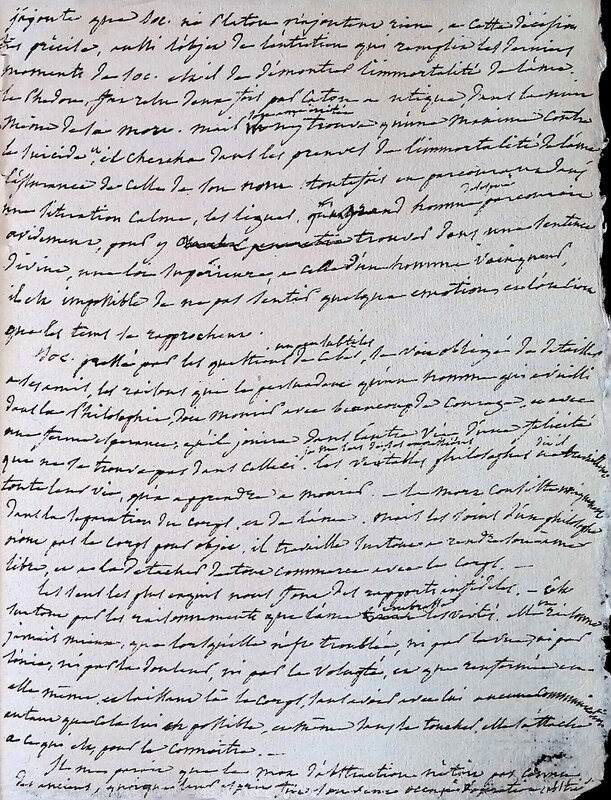 j'ajoute que Soc. ni Platon n'ajoutent rien, a cette décision
très précise, aussi l'objet de l'entretien qui remplit les derniers
moments de Soc. est il de démontrer l'immortalité de l'âme.
Le Phedon, fut relu deux fois par Caton a utique dans la nuit
même de sa mort. mais trouve qu'une maxime contre
le suicide, il chercha dans les preuves de l'immortalité de l'âme
l'assurance de celle de son nom. toutefois en parcourant dans
une situation calme, les lignes, qu'un grand homme parcourut
avidement, pour y trouver dans une sentence
divine, une loi supérieure, a celle d'un homme vainqueur,
il est impossible de ne pas sentir quelque emotion,
que les tems se rapprochent.
Soc. pressé par les questions de Cebes, se voit obligé de détailler
a ses amis, les raisons qui le persuadent qu'un homme qui a vieilli
dans la Philosophie, doit mourir avec beaucoup de courage, et avec
une ferme esperance, qu'il jouira dans l'autre vie d'une félicité
que ne se trouve pas dans celle ci. les véritables philosophes
toute leur vie, qu'a apprendre a mourir. – la mort consiste
dans la separation du corps, et de l'ame. mais les soins d'un philosophe
n'ont pas le corps pour objet, il travaille surtout a rendre son ame
libre, et a la détacher de tout commerce avec le corps. –
les sens les plus exquis nous font des rapports infidèles, – c'est
surtout par les raisonnements que l'ame embrasse les vérités, elle ne raisonne
jamais mieux, que lorsqu'elle n'est troublée, ni par la vue, ni par
l'ouie, ni par la douleur, ni par la volupté, et que renfermée en
elle même, et laissant là le corps, sans avoir avec lui aucune communication
autant que cela lui est possible, et même sans le toucher, elle s'attache
a ce qui est, pour le connoitre. –
Il me paroit que le mot d'abstraction n'étoit pas connu
des anciens, quoique leur esprit